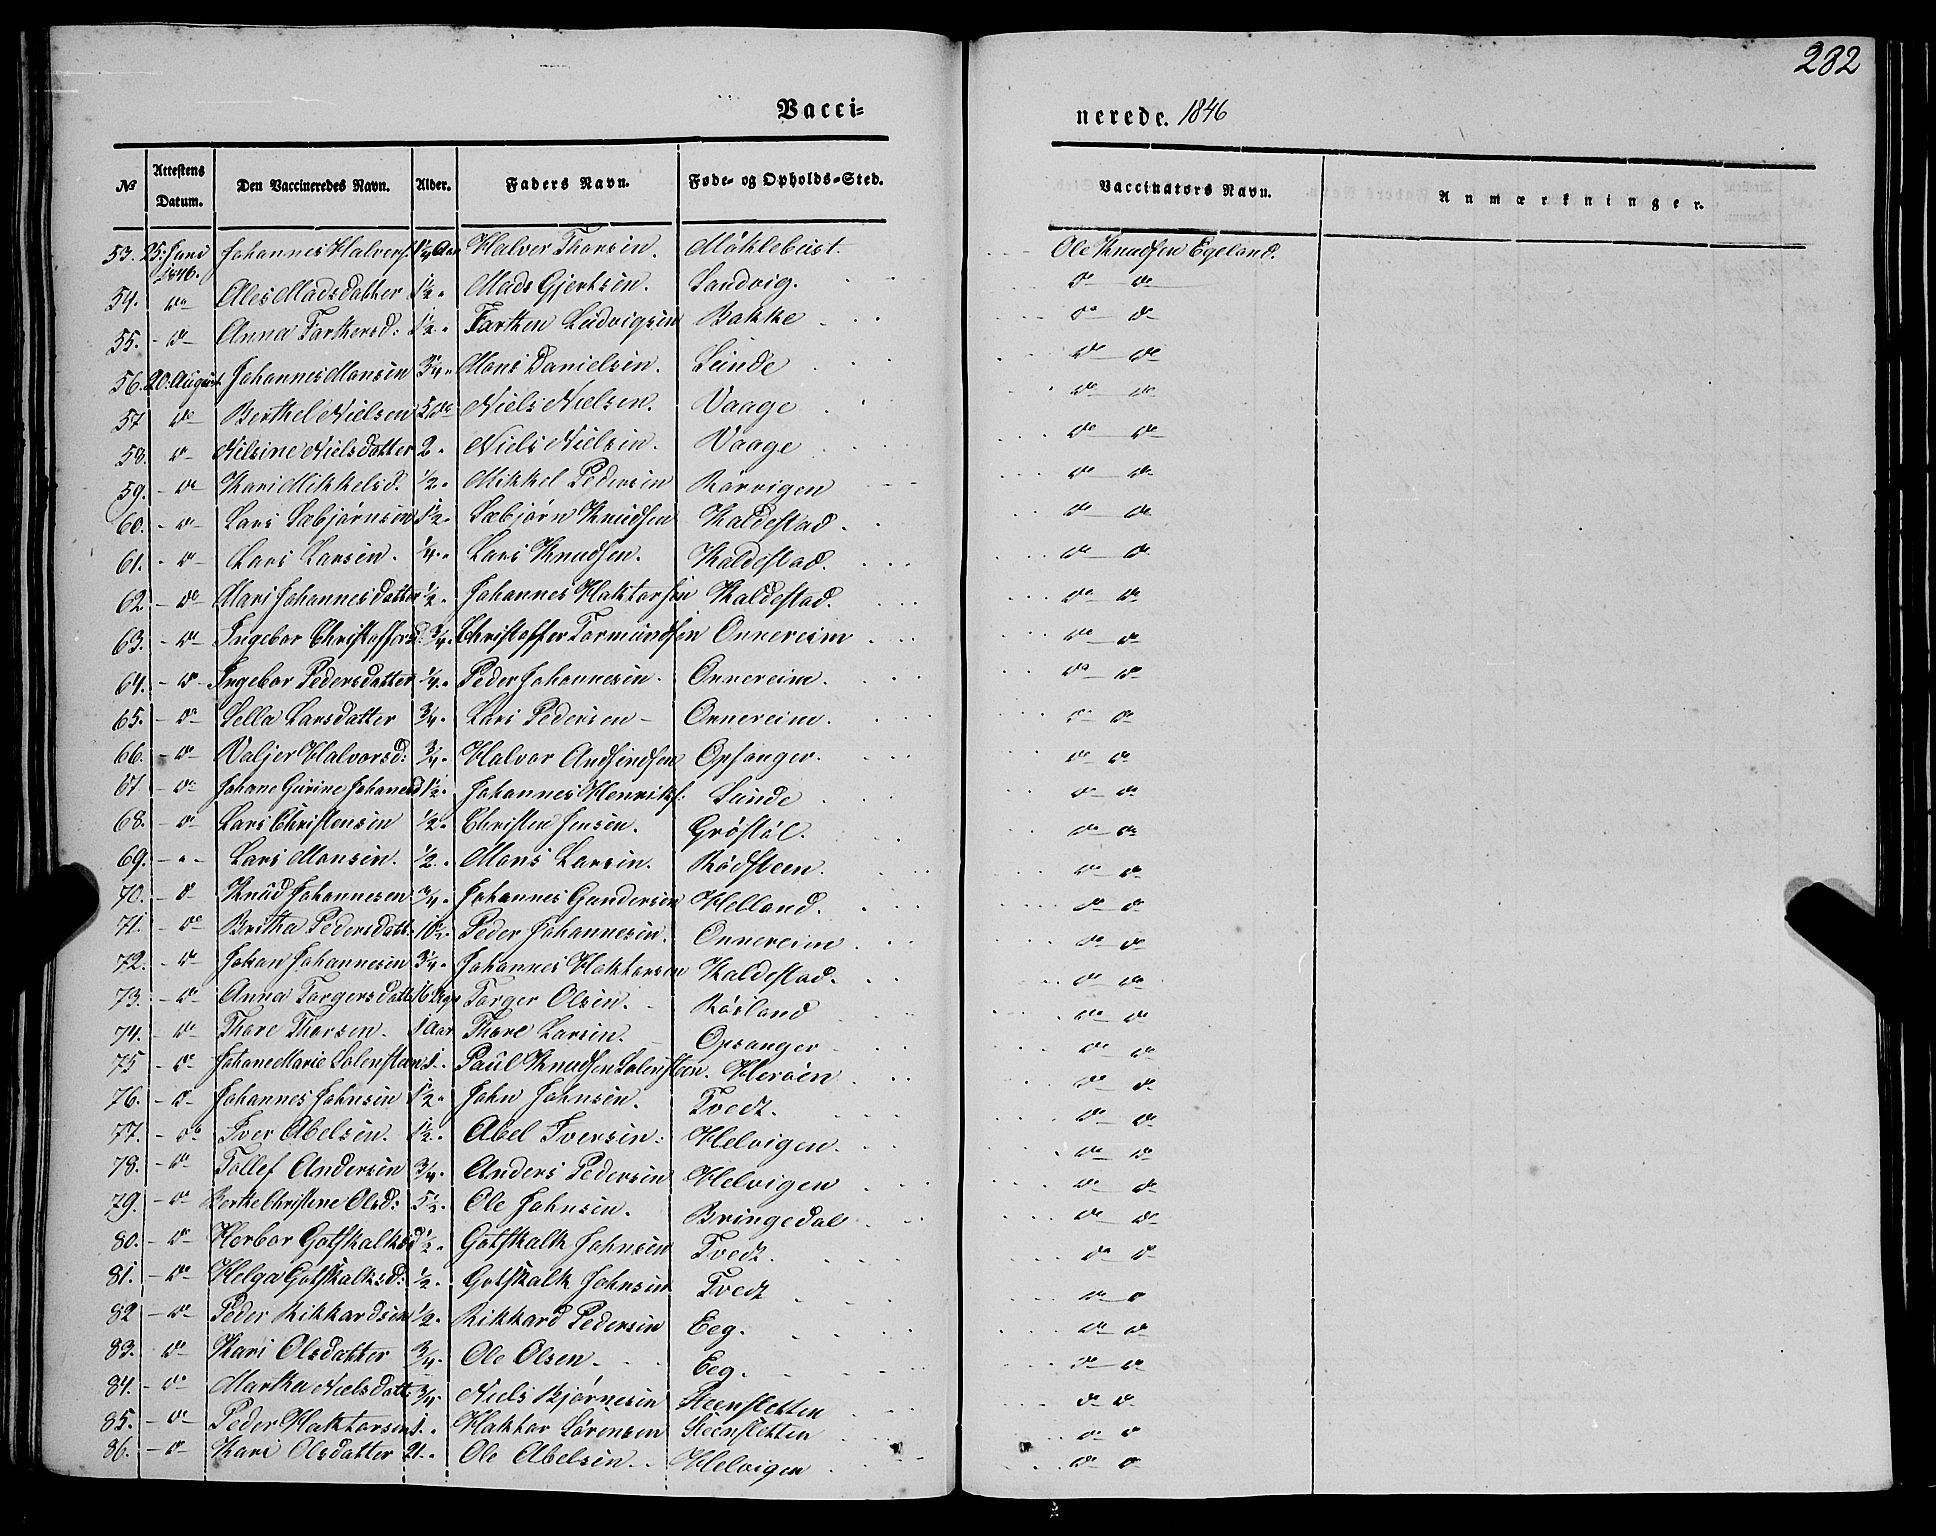 232
Vacci- nerede. 1846
No Attestens Datum. Den Vaccineredes Navn. Alder. Faders Navn. Føde- og Opholds-Sted. Vaccinators Navn. Anmærkninger.
53. 25. Juni 1846. Johannes Halvers. 1/4 Aar Halver Thorsen. Møklebust. Ole Knudsen Egeland.
54. do Ales Madsdatter 1/2 " Mads Gjertsen. Sandvig. do do
55. do Anna Tarkersd: 1/2 " Bakke do do
56. 20. August Johannes Monsen 3/4 " Mons Danielsen. Sunde do do
57 do Berthel Nielsen 5 do Niels Nielsen. Vaage do do
58. do Nilsine Nielsdatter 2 " Niels Nielsen. Vaage do do
59. do Kari Mikkelsd. 1/2 " Mikkel Pedersen Rørvigen do do
60. do Lars Sæbjørnsen 1/2 " Sæbjørn Knudsen Kaldestad. do do
61. do Lars Larsen. 1/4 " Lars Knudsen. Kaldestad. do do
62 do Mari Johannesdatter 1/2 " Johannes Haktorsen Kaldestad. do do
63. do Ingebor Christoffersd. 3/4 " Christoffer Tormundsen Onnereim do do
64. do Ingebor Pedersdatter 1/4 " Peder Johannesen. Onnereim. do do
65. do Sella Larsdatter 3/4 " Lars Pedersen Onnereim. do do
66. do Valjer Halvorsd: 3/4 " Halvor Opsanger. do do
67 do Johane Gurine Johanesd 1 1/2 " Johannes Henriks: Sunde do do
68. do Lars Christensen 1/2 " Christen Jensen. Grøstøl. do do
69. " Lars Monsen. 1/2 " Mons Larsen. Rødsteen. do do
70. do Knud Johannesen 3/4 " Johannes Gundersen Helland. do do
71. do Britha Pedersdatt: 10 1/2 Peder Johannesen. Onnereim do do
72. do Johan Johannesen 3/4 " Johannes Haktorsen Kaldestad. do do
73. do Anna Torgersdatt 16 Uger Torger Olsen. Røsland do do
74. do Thore Thorsen. 1 Aar Thore Larsen. Opsanger do do
75 do Johane Marie Solensteen 1 " Paul Knudsen Solensteen. Herøen do do
76. do Johannes Johnsen 1/2 " John Johnsen. Tvedt. do do
77. do Iver Abelsen. 1/2 " Abel Iversen: Helvigen. do do
78. do Tollef Andersen 3/4 " Anders Pedersen Helvigen do do
79. do Berthe Christine Olsd: 5 1/2 " Ole Johnsen. Bringedal do do
80. do Herbor Gotskalksd 1/2 " Gotskalk Johnsen Tvedt. do do
81. do Helga Gotskalksd: 1/2 " Gotskalk Johnsen Tvedt do do
82 do Peder Rikkardsen 1/2 " Rikkard Pedersen Eeg. do do
83. do Kari Olsdatter 3/4 " Ole Olsen. Eeg. do do
84. do Martha Nielsdatt: 3/4 Niels Bjørnesen Steensletten do do
85. do Peder Haktorsen 1 " Haktor Sørensen Steensletten do do
86. do Kari Olsdatter 21 " Ole Abelsen. Helvigen do do